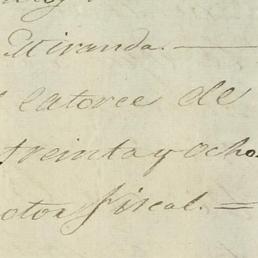 Miranda.
catorce de
treinta y ocho.
otor Fiscal.